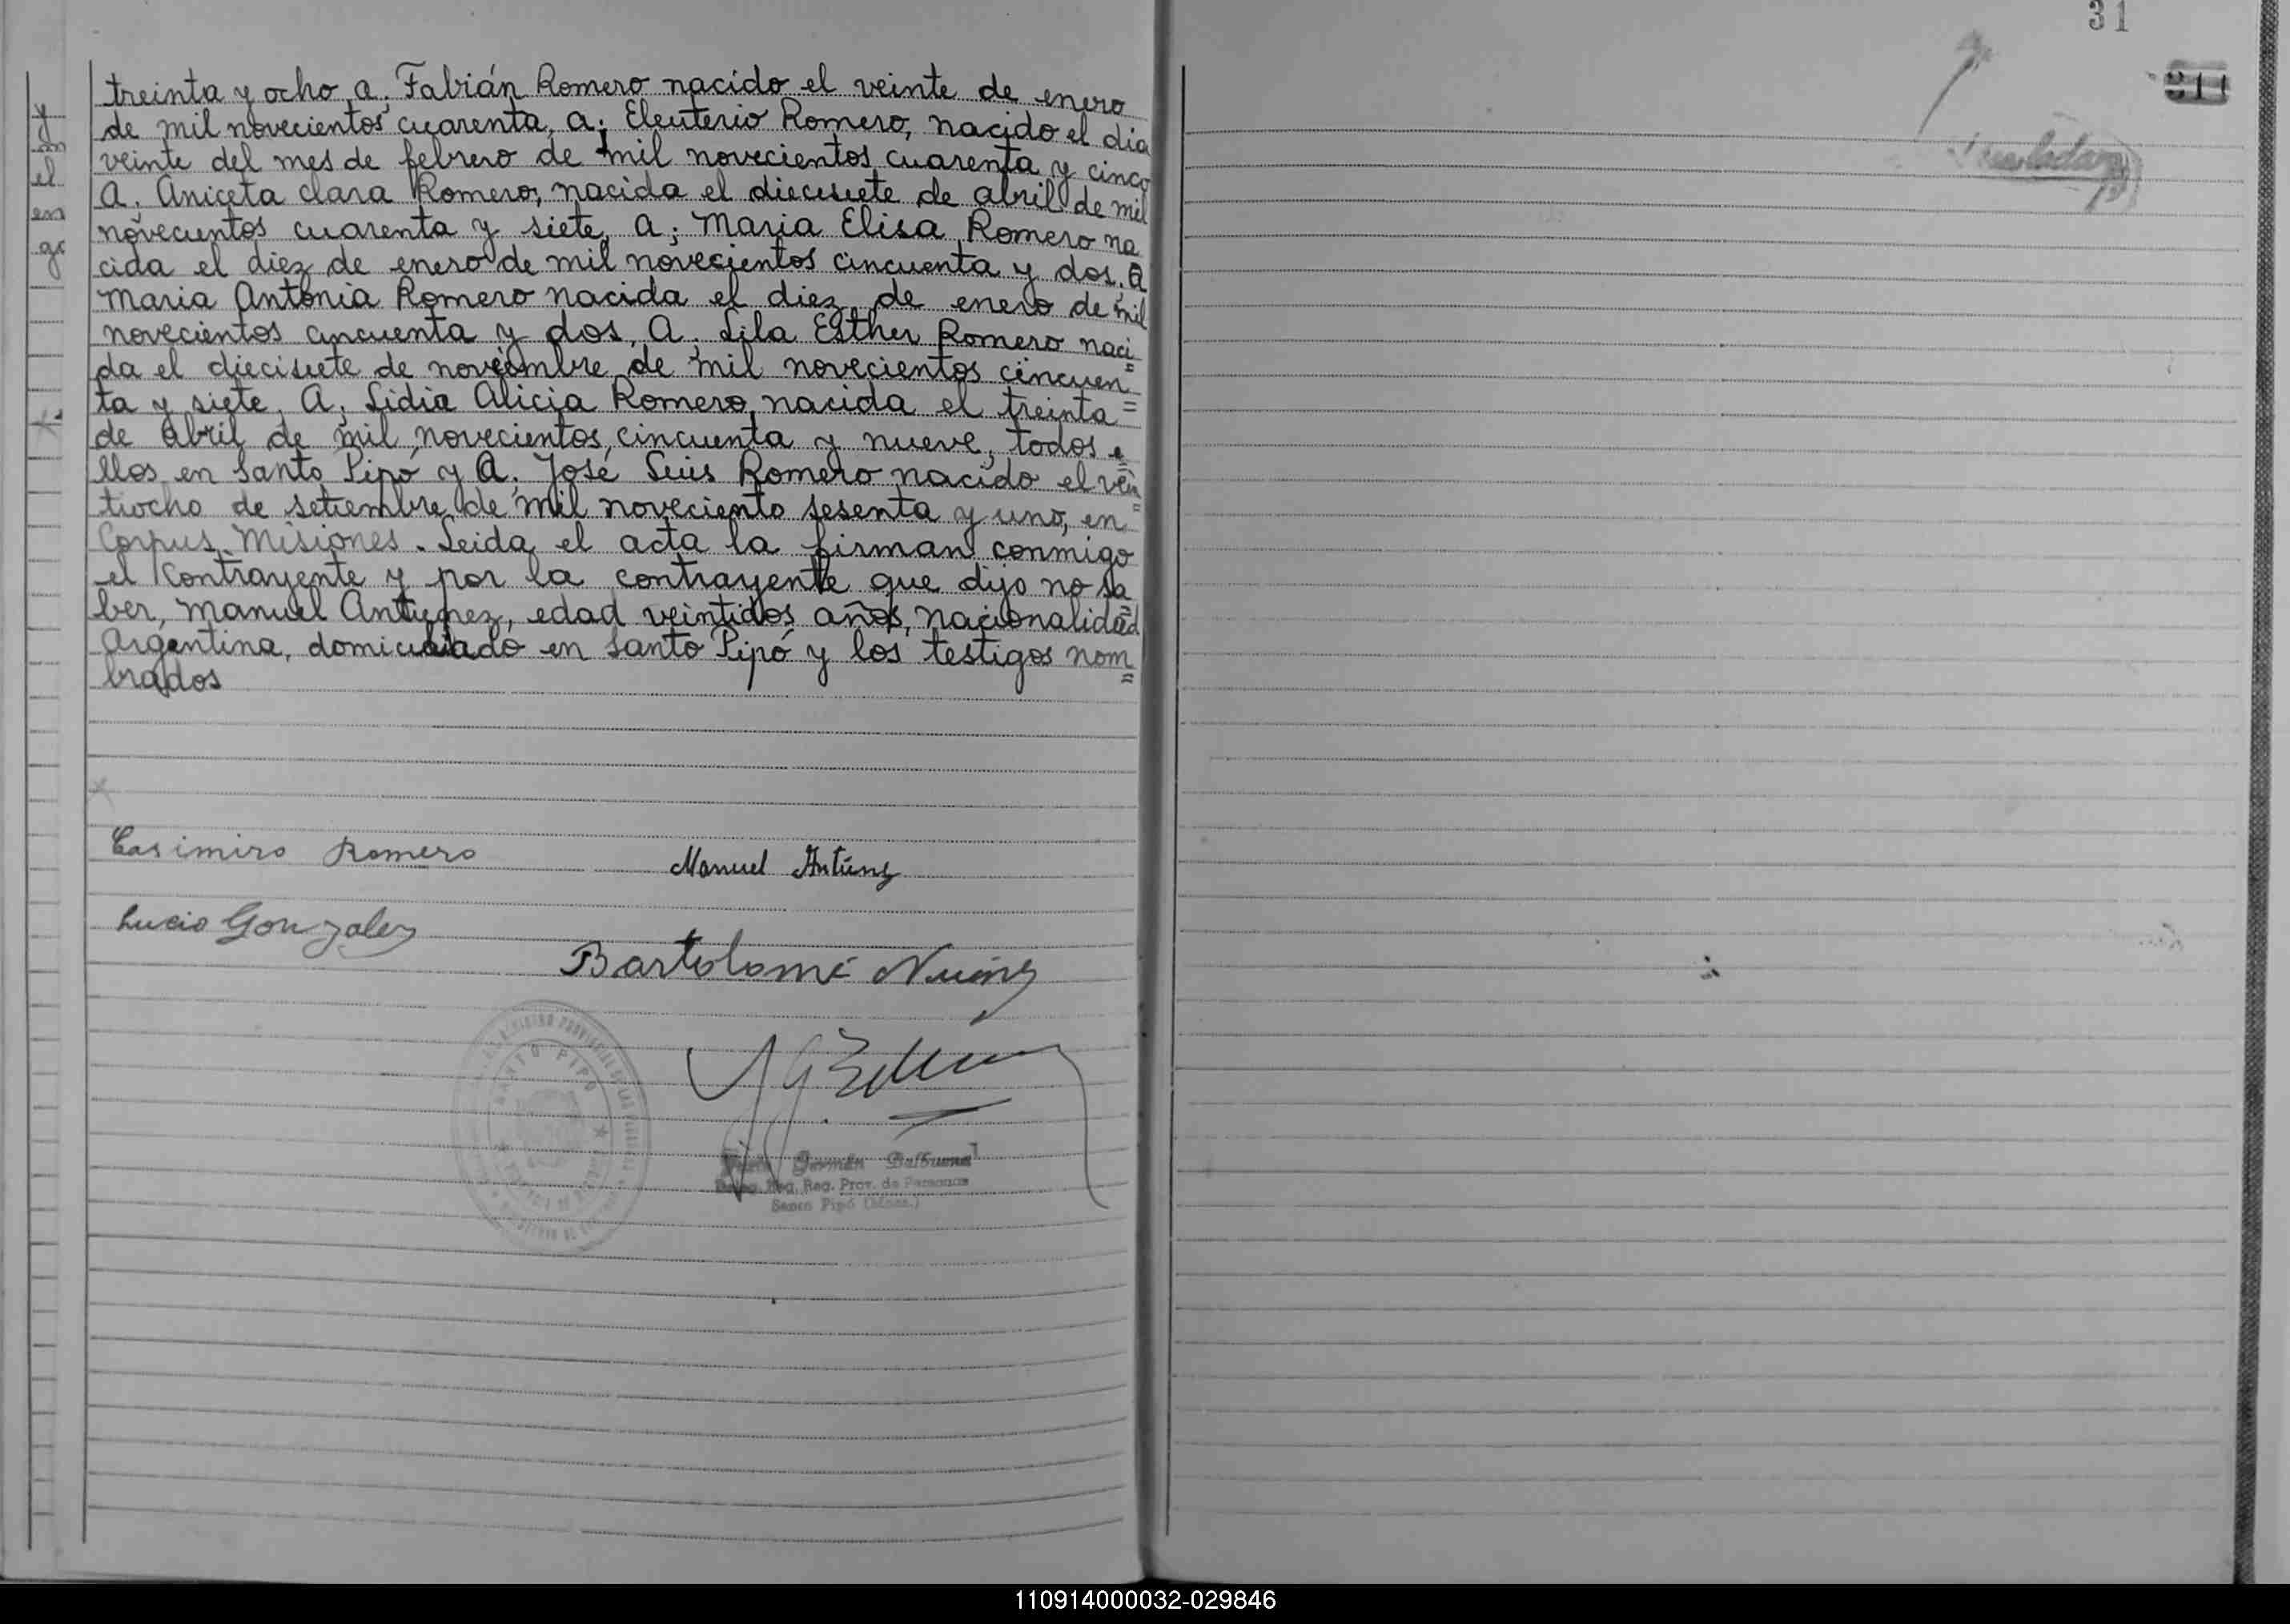 treinta y ocho, a, Fabián Romero nacido el veinte de enero
de mil novecientos cuarenta, a; Eleuterio Romero, nacido el dia
veinte del mes de febrero de mil novecientos cuarenta y cinco
A. Aniceta Clara Romero, nacida el diecisiete de abril de mil
novecientos cuarenta y siete, a; Maria Elisa Romero na
cida el diez de enero de mil novecientos cincuenta y dos. a
Maria Antonia Romero nacida el diez de enero de mil
novecientos cincuenta y dos, A. Lila Esther Romero naci=
da el diecisiete de noviembre de mil novecientos cincuen=
ta y siete, A, Lidia Alicia Romero, nacida el treinta=
de abril de mil novecientos cincuenta y nueve, todos e=
llos en Santo Pipó y A. José Luis Romero nacido el vein=
tiocho de setiembre de mil noveciento sesenta y uno, en=
Corpus, Misiones. Leida el acta la firman conmigo
el contrayente y por la contrayente que dijo no sa=
ber, Manuel Antunez, edad veintidos años, nacionalidad
Argentina, domiciliado en Santo Pipó y los testigos nom=
brados
Casimiro Romero
Manuel Antúnez
Lucio Gonzalez
Bartolomé Nuñez
SANTO PIPO
Germán Balbuena
Reg. Prov. de Personas
Santo Pipó (Mnes.)
31
211
y
el
en
110914000032-029846